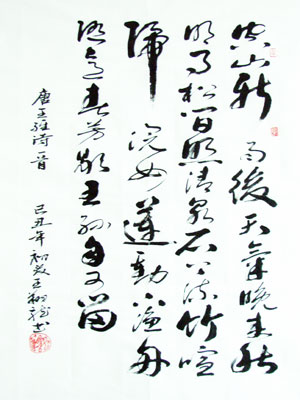 空山新雨後天氣晚來秋
明月松間照清泉石上流竹喧
歸浣女蓮動下漁舟
隨意春芳歇王孫自可留
唐王維詩一首 己丑年初夏王書